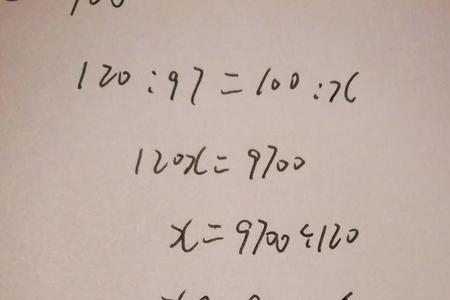 120:97=100:x
120x=9700
x=9700÷120